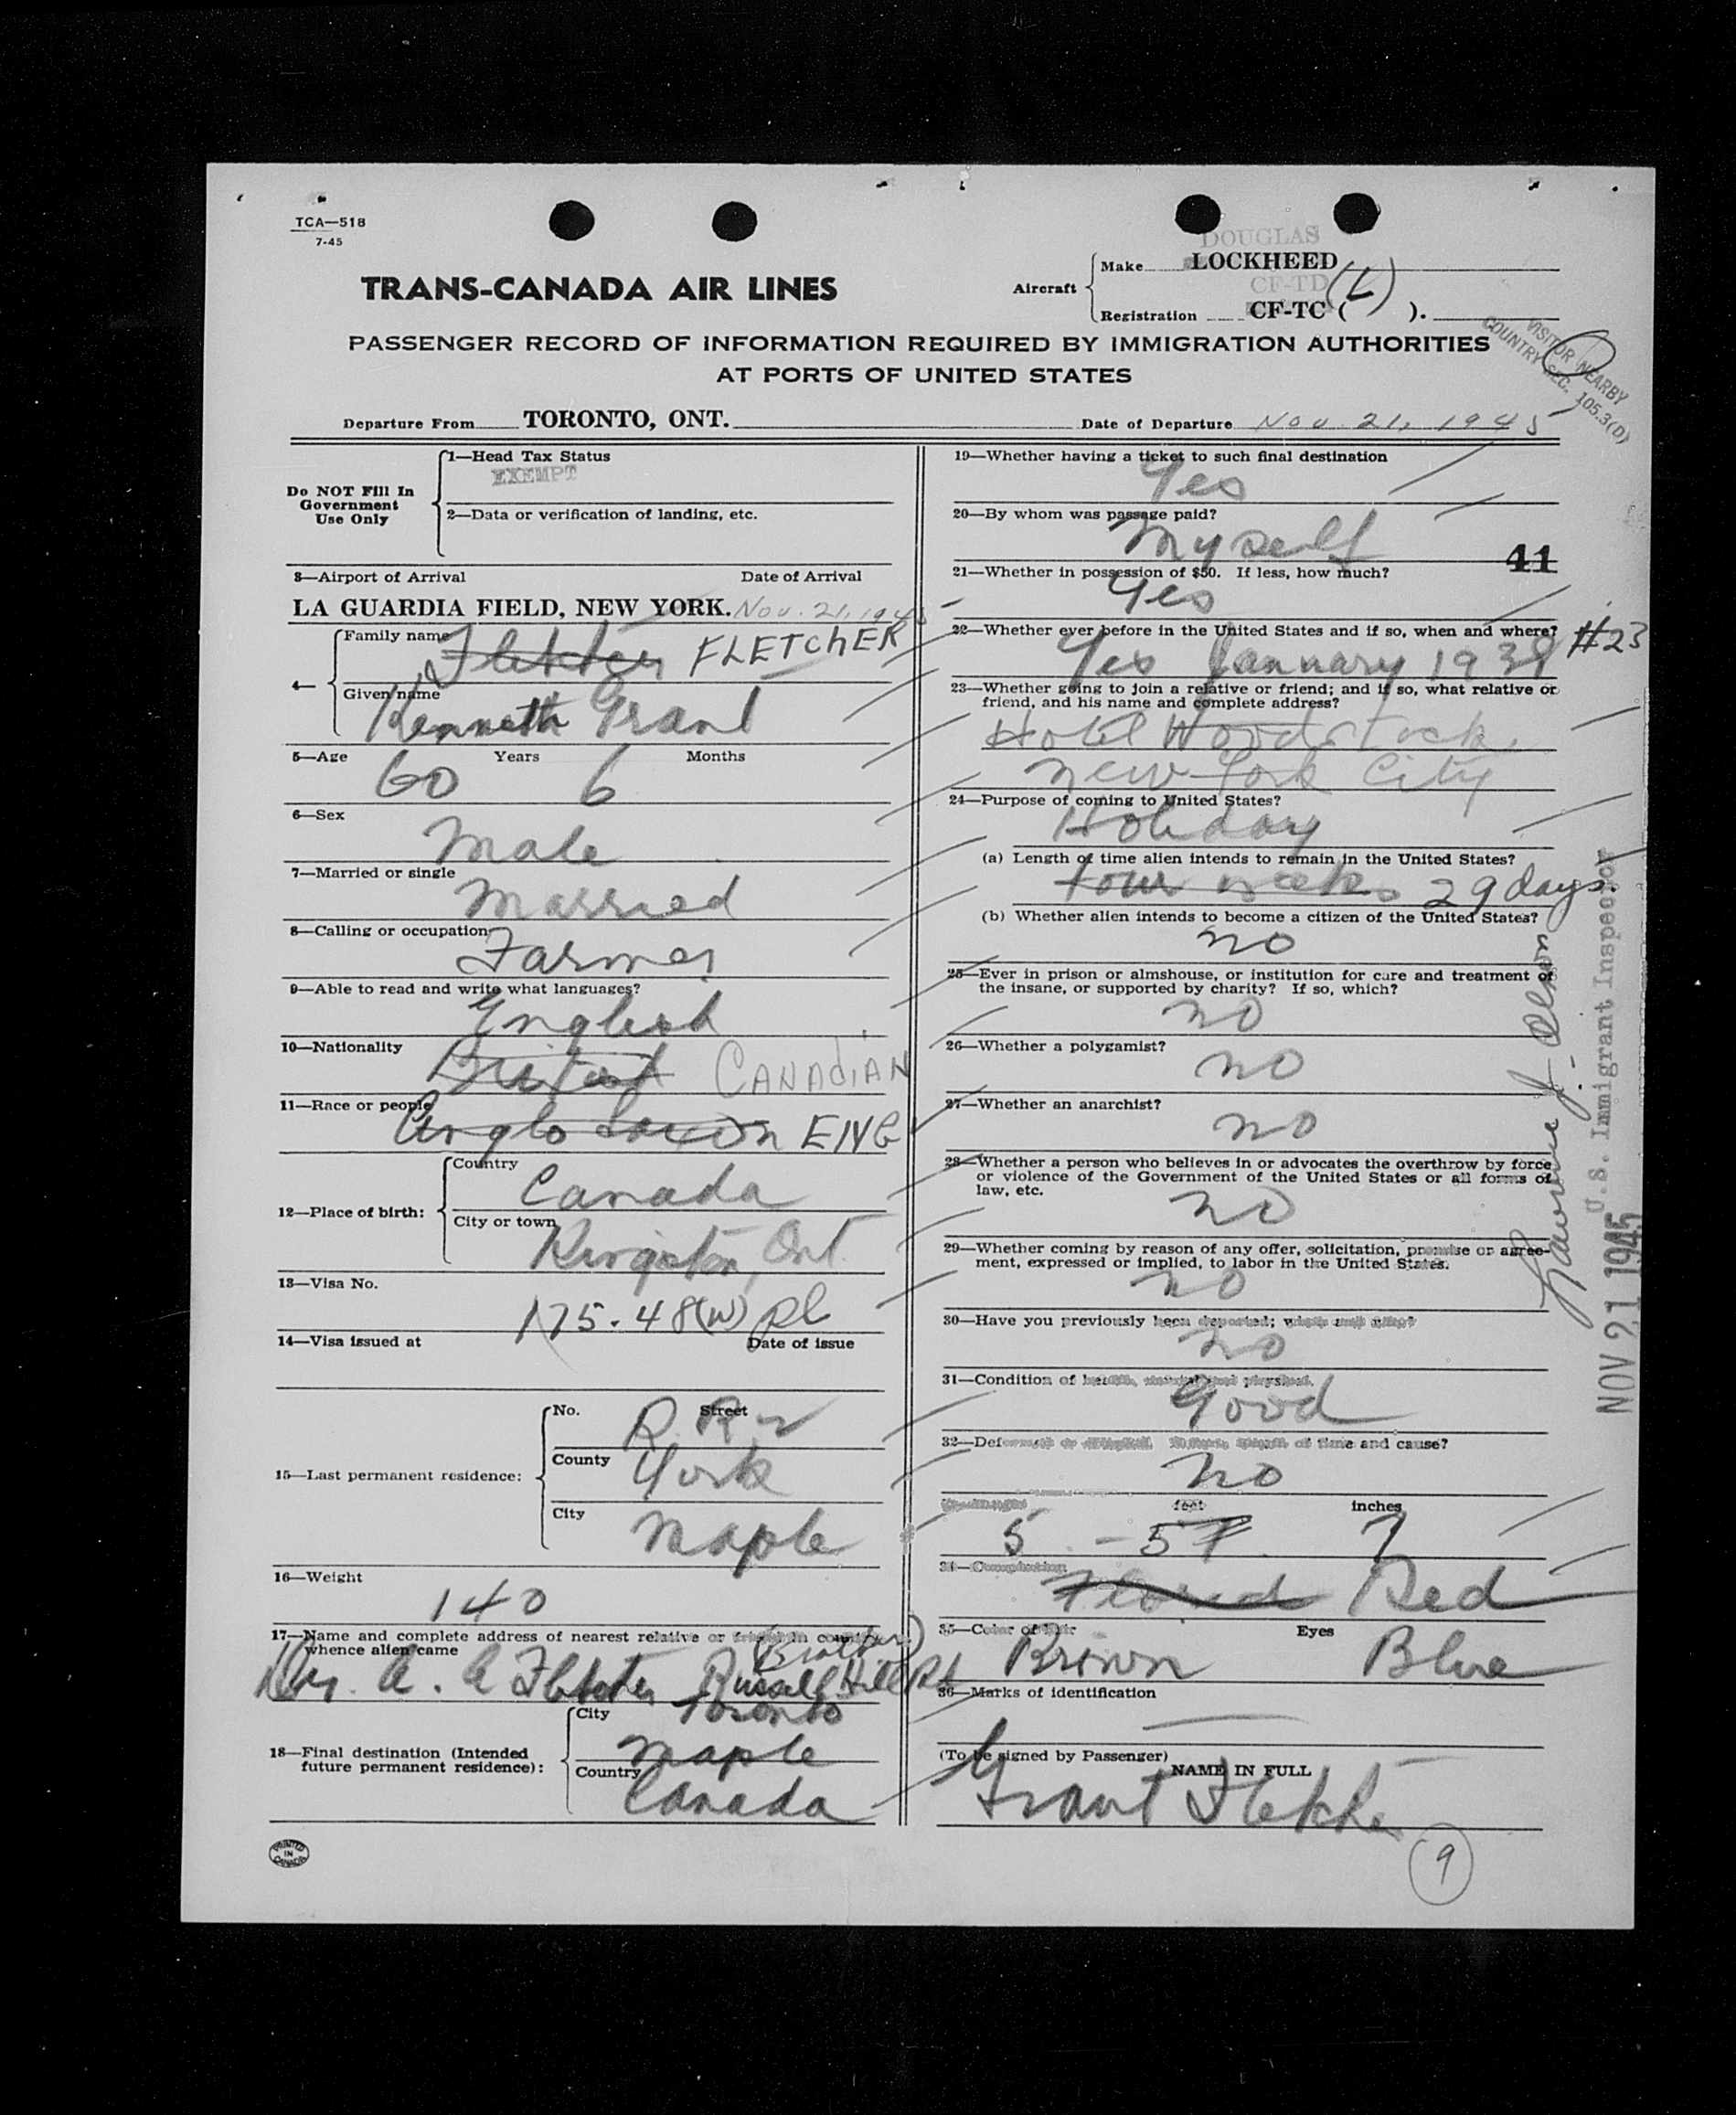 TCA—518
7-45
DOUGLAS
Make LOCKHEED
TRANS-CANADA AIR LINES
Aircraft
CF-TD
Registration CF-TC (L) ( ).
PASSENGER RECORD OF INFORMATION REQUIRED BY IMMIGRATION AUTHORITIES
AT PORTS OF UNITED STATES
VISITOR NEARBY
COUNTRY SEC. 105.3(D)
Departure From TORONTO, ONT.
Date of Departure Nov. 21, 1945
Do NOT Fill In
Government
Use Only
1—Head Tax Status
EXEMPT
2—Data or verification of landing, etc.
3—Airport of Arrival Date of Arrival
LA GUARDIA FIELD, NEW YORK. Nov. 21, 1945
4—
Family name
Fletcher FLETCHER
Given name
Kenneth Grant
5—Age Years Months
60 6
6—Sex
Male
7—Married or single
Married
8—Calling or occupation
Farmer
9—Able to read and write what languages?
English
10—Nationality
British CANADIAN
11—Race or people
Anglo Saxon ENG
12—Place of birth:
Country
Canada
City or town
Kingston, Ont.
13—Visa No.
175.48(W) Pl
14—Visa issued at Date of issue
15—Last permanent residence:
No. Street
R. R. 2
County
York
City
Maple
16—Weight
140
17—Name and complete address of nearest relative or friend in country
whence alien came
(Brother)
A. A Fletcher Russell Hill Rd
Toronto
18—Final destination (Intended
future permanent residence):
City
Maple
Country
Canada
PRINTED
IN
CANADA
19—Whether having a ticket to such final destination
Yes
20—By whom was passage paid?
Myself
41
21—Whether in possession of $50. If less, how much?
Yes
22—Whether ever before in the United States and if so, when and where?
Yes January 1938 #23
23—Whether going to join a relative or friend; and if so, what relative or
friend, and his name and complete address?
Hotel Woodstock,
New York City
24—Purpose of coming to United States?
Holiday
(a) Length of time alien intends to remain in the United States?
four weeks 29 days.
(b) Whether alien intends to become a citizen of the United States?
no
25—Ever in prison or almshouse, or institution for care and treatment of
the insane, or supported by charity? If so, which?
no
26—Whether a polygamist?
no
27—Whether an anarchist?
no
28—Whether a person who believes in or advocates the overthrow by force
or violence of the Government of the United States or all forms of
law, etc.
no
29—Whether coming by reason of any offer, solicitation, promise or agree-
ment, expressed or implied, to labor in the United States.
no
30—Have you previously been deported;
no
31—Condition of health, mental and physical.
Good
32— of time and cause?
no
feet inches
5 - 57 7
34—Complexion
Florid Red
35—Color of Hair Eyes
Brown Blue
36—Marks of identification
(To be signed by Passenger)
NAME IN FULL
Grant Fletcher
9
U.S. Immigrant Inspector
NOV 21 1945